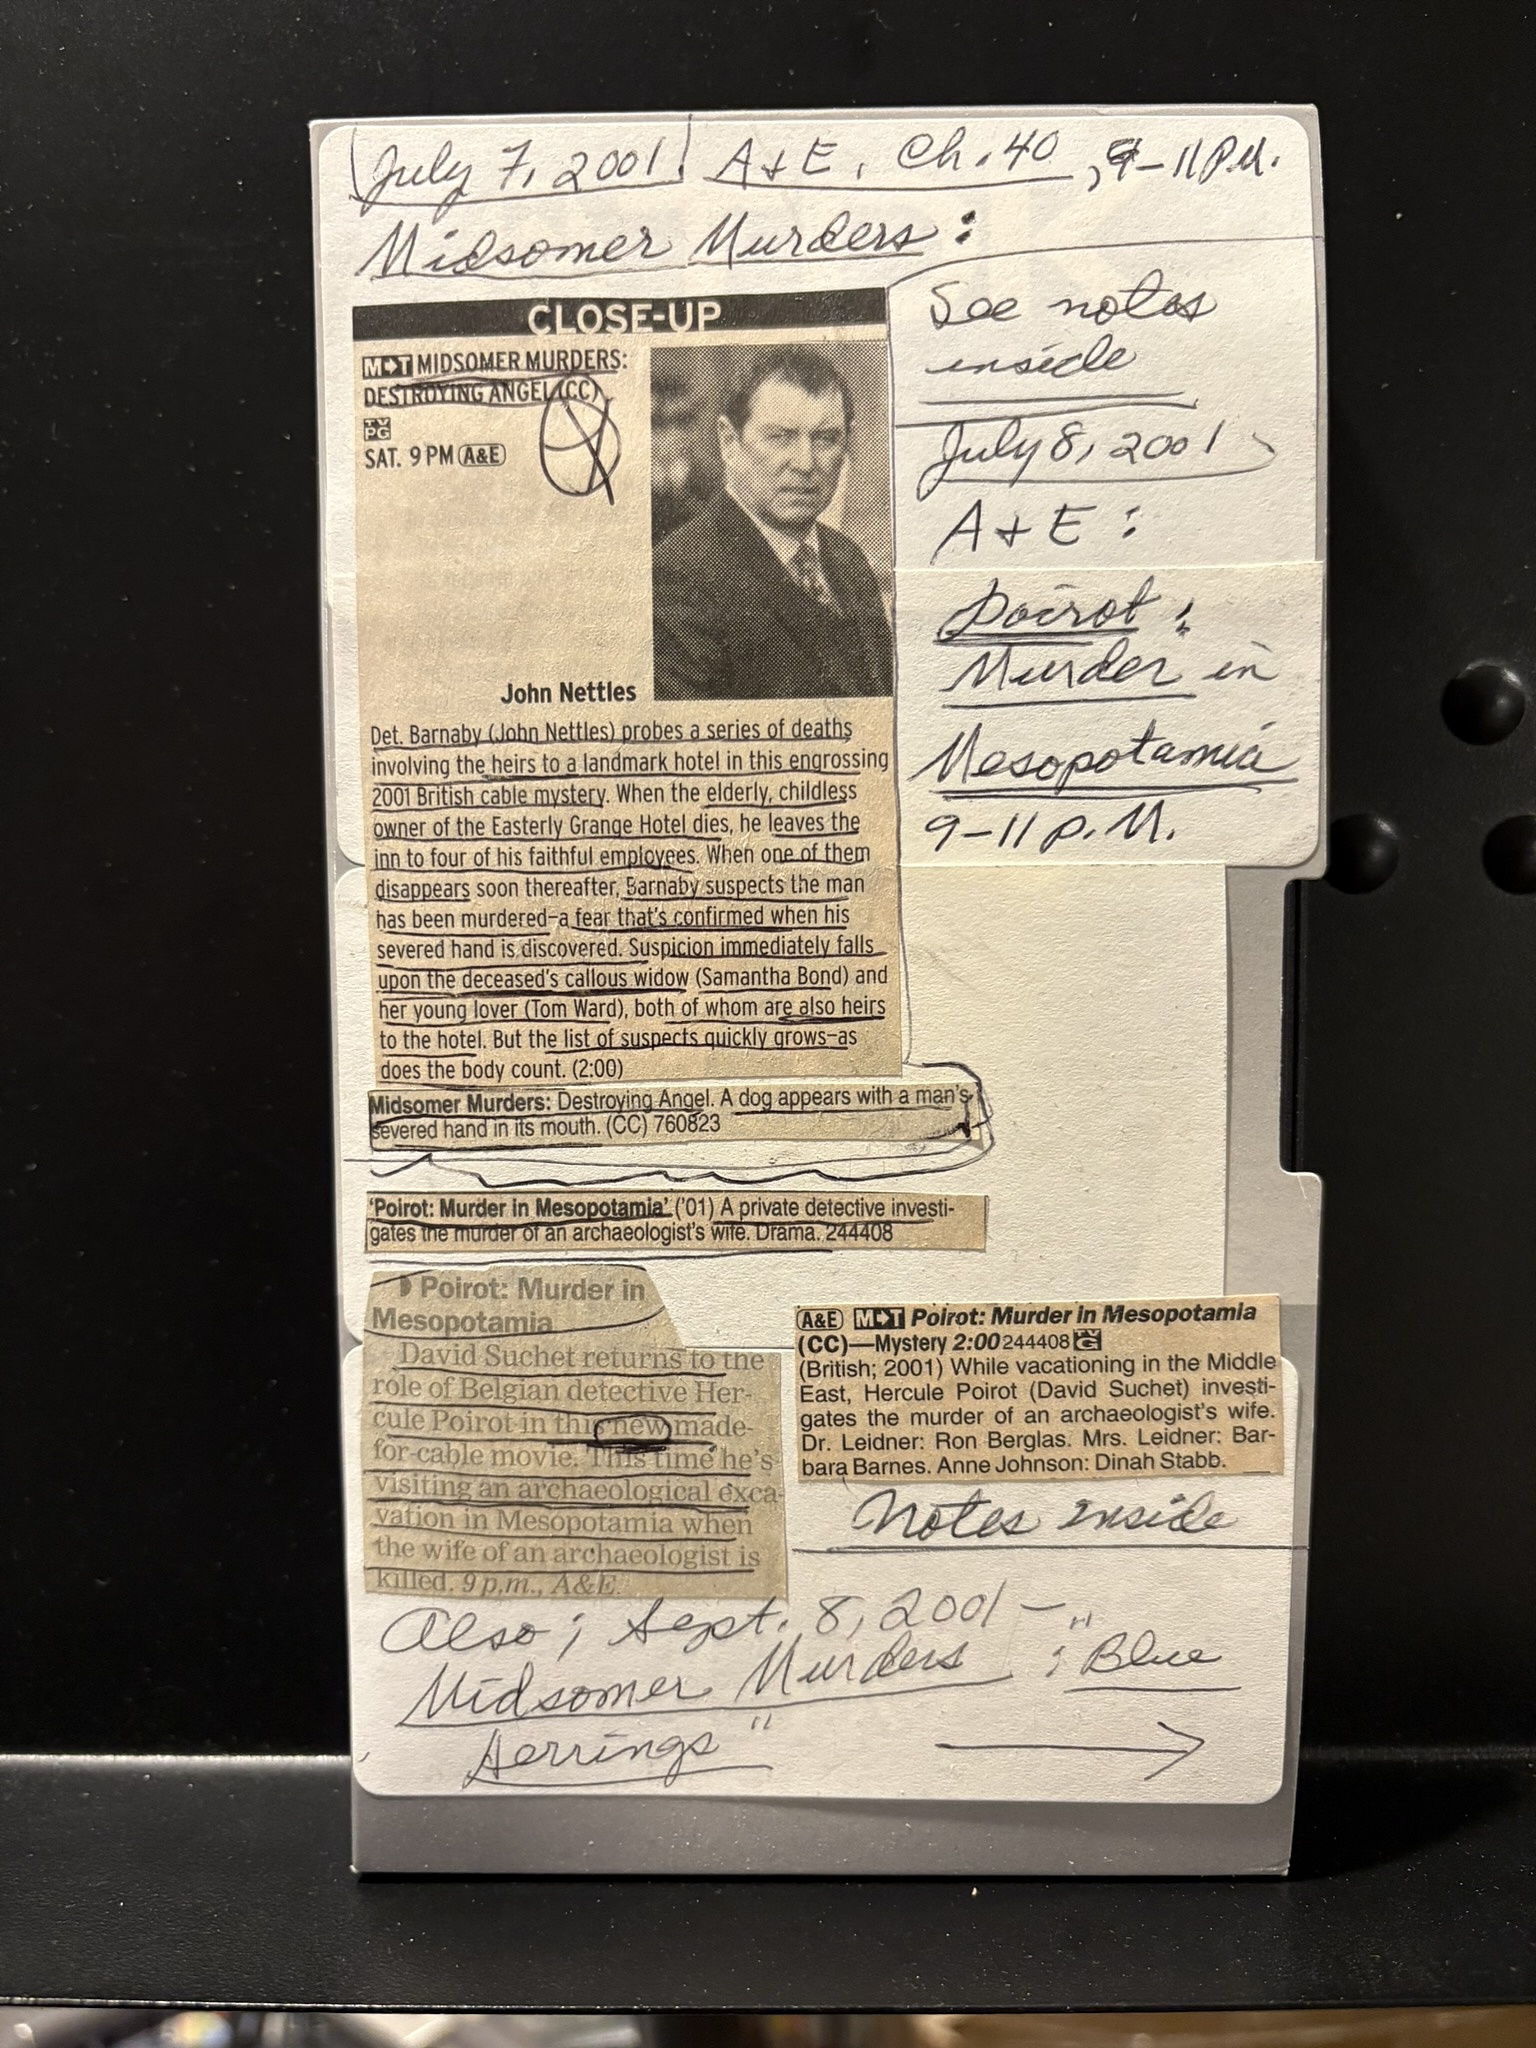 July 7, 2001 A & E, Ch. 40, 9-11 P.M.
Midsomer Murders:
CLOSE-UP
M➔T MIDSOMER MURDERS:
DESTROYING ANGEL (CC)
TV
PG
SAT. 9 PM A&E
John Nettles
Det. Barnaby (John Nettles) probes a series of deaths
involving the heirs to a landmark hotel in this engrossing
2001 British cable mystery. When the elderly, childless
owner of the Easterly Grange Hotel dies, he leaves the
inn to four of his faithful employees. When one of them
disappears soon thereafter, Barnaby suspects the man
has been murdered—a fear that's confirmed when his
severed hand is discovered. Suspicion immediately falls
upon the deceased's callous widow (Samantha Bond) and
her young lover (Tom Ward), both of whom are also heirs
to the hotel. But the list of suspects quickly grows—as
does the body count. (2:00)
See notes
inside
July 8, 2001
A & E:
Poirot:
Murder in
Mesopotamia
9-11 P.M.
Midsomer Murders: Destroying Angel. A dog appears with a man's
severed hand in its mouth. (CC) 760823
'Poirot: Murder in Mesopotamia' ('01) A private detective investi-
gates the murder of an archaeologist's wife. Drama. 244408
Poirot: Murder in
Mesopotamia
David Suchet returns to the
role of Belgian detective Her-
cule Poirot in this new made-
for-cable movie. This time he's
visiting an archaeological exca-
vation in Mesopotamia when
the wife of an archaeologist is
killed. 9 p.m., A&E.
A&E M➔T Poirot: Murder in Mesopotamia
(CC)—Mystery 2:00 244408 TV G
(British; 2001) While vacationing in the Middle
East, Hercule Poirot (David Suchet) investi-
gates the murder of an archaeologist's wife.
Dr. Leidner: Ron Berglas. Mrs. Leidner: Bar-
bara Barnes. Anne Johnson: Dinah Stabb.
Notes inside
Also; Sept. 8, 2001 —
Midsomer Murders: "Blue
Herrings"